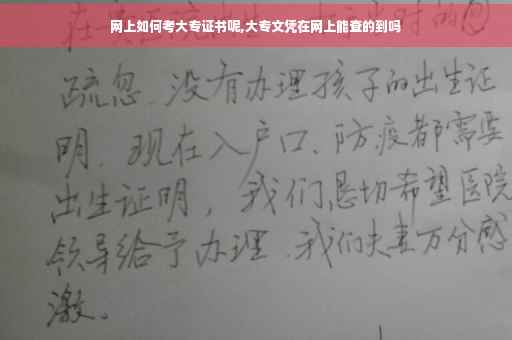 网上如何考大专证书呢,大专文凭在网上能查的到吗
疏忽、没有办理孩子的出生证
明、现在入户口、防疫都需要
出生证明，我们恳切希望医院
领导给予办理、我们夫妻万分感
激。